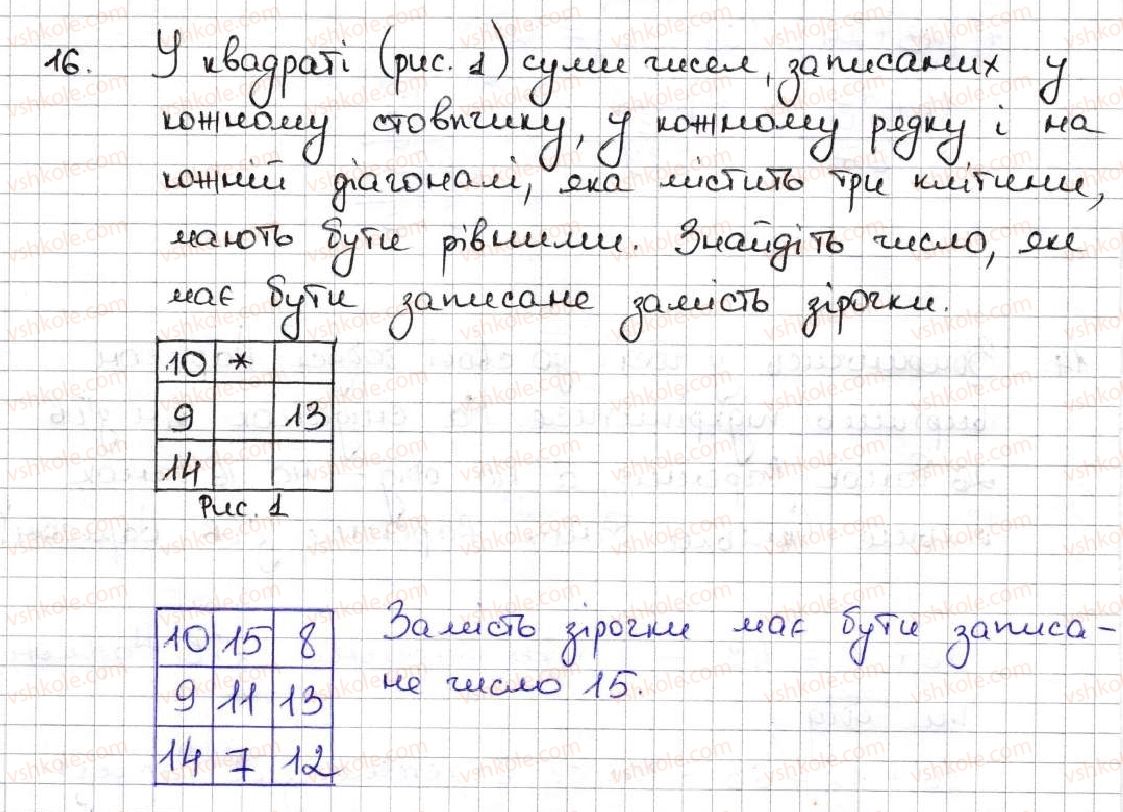 16. У квадраті (рис. 1) суми чисел, записаних у
кожному стовпчику, у кожному рядку і на
кожній діагоналі, яка містить три клітини,
мають бути рівними. Знайдіть число, яке
має бути записане замість зірочки.
10 *
9 13
14
Рис. 1
10 15 8
9 11 13
14 7 12
Замість зірочки має бути записа-
не число 15.